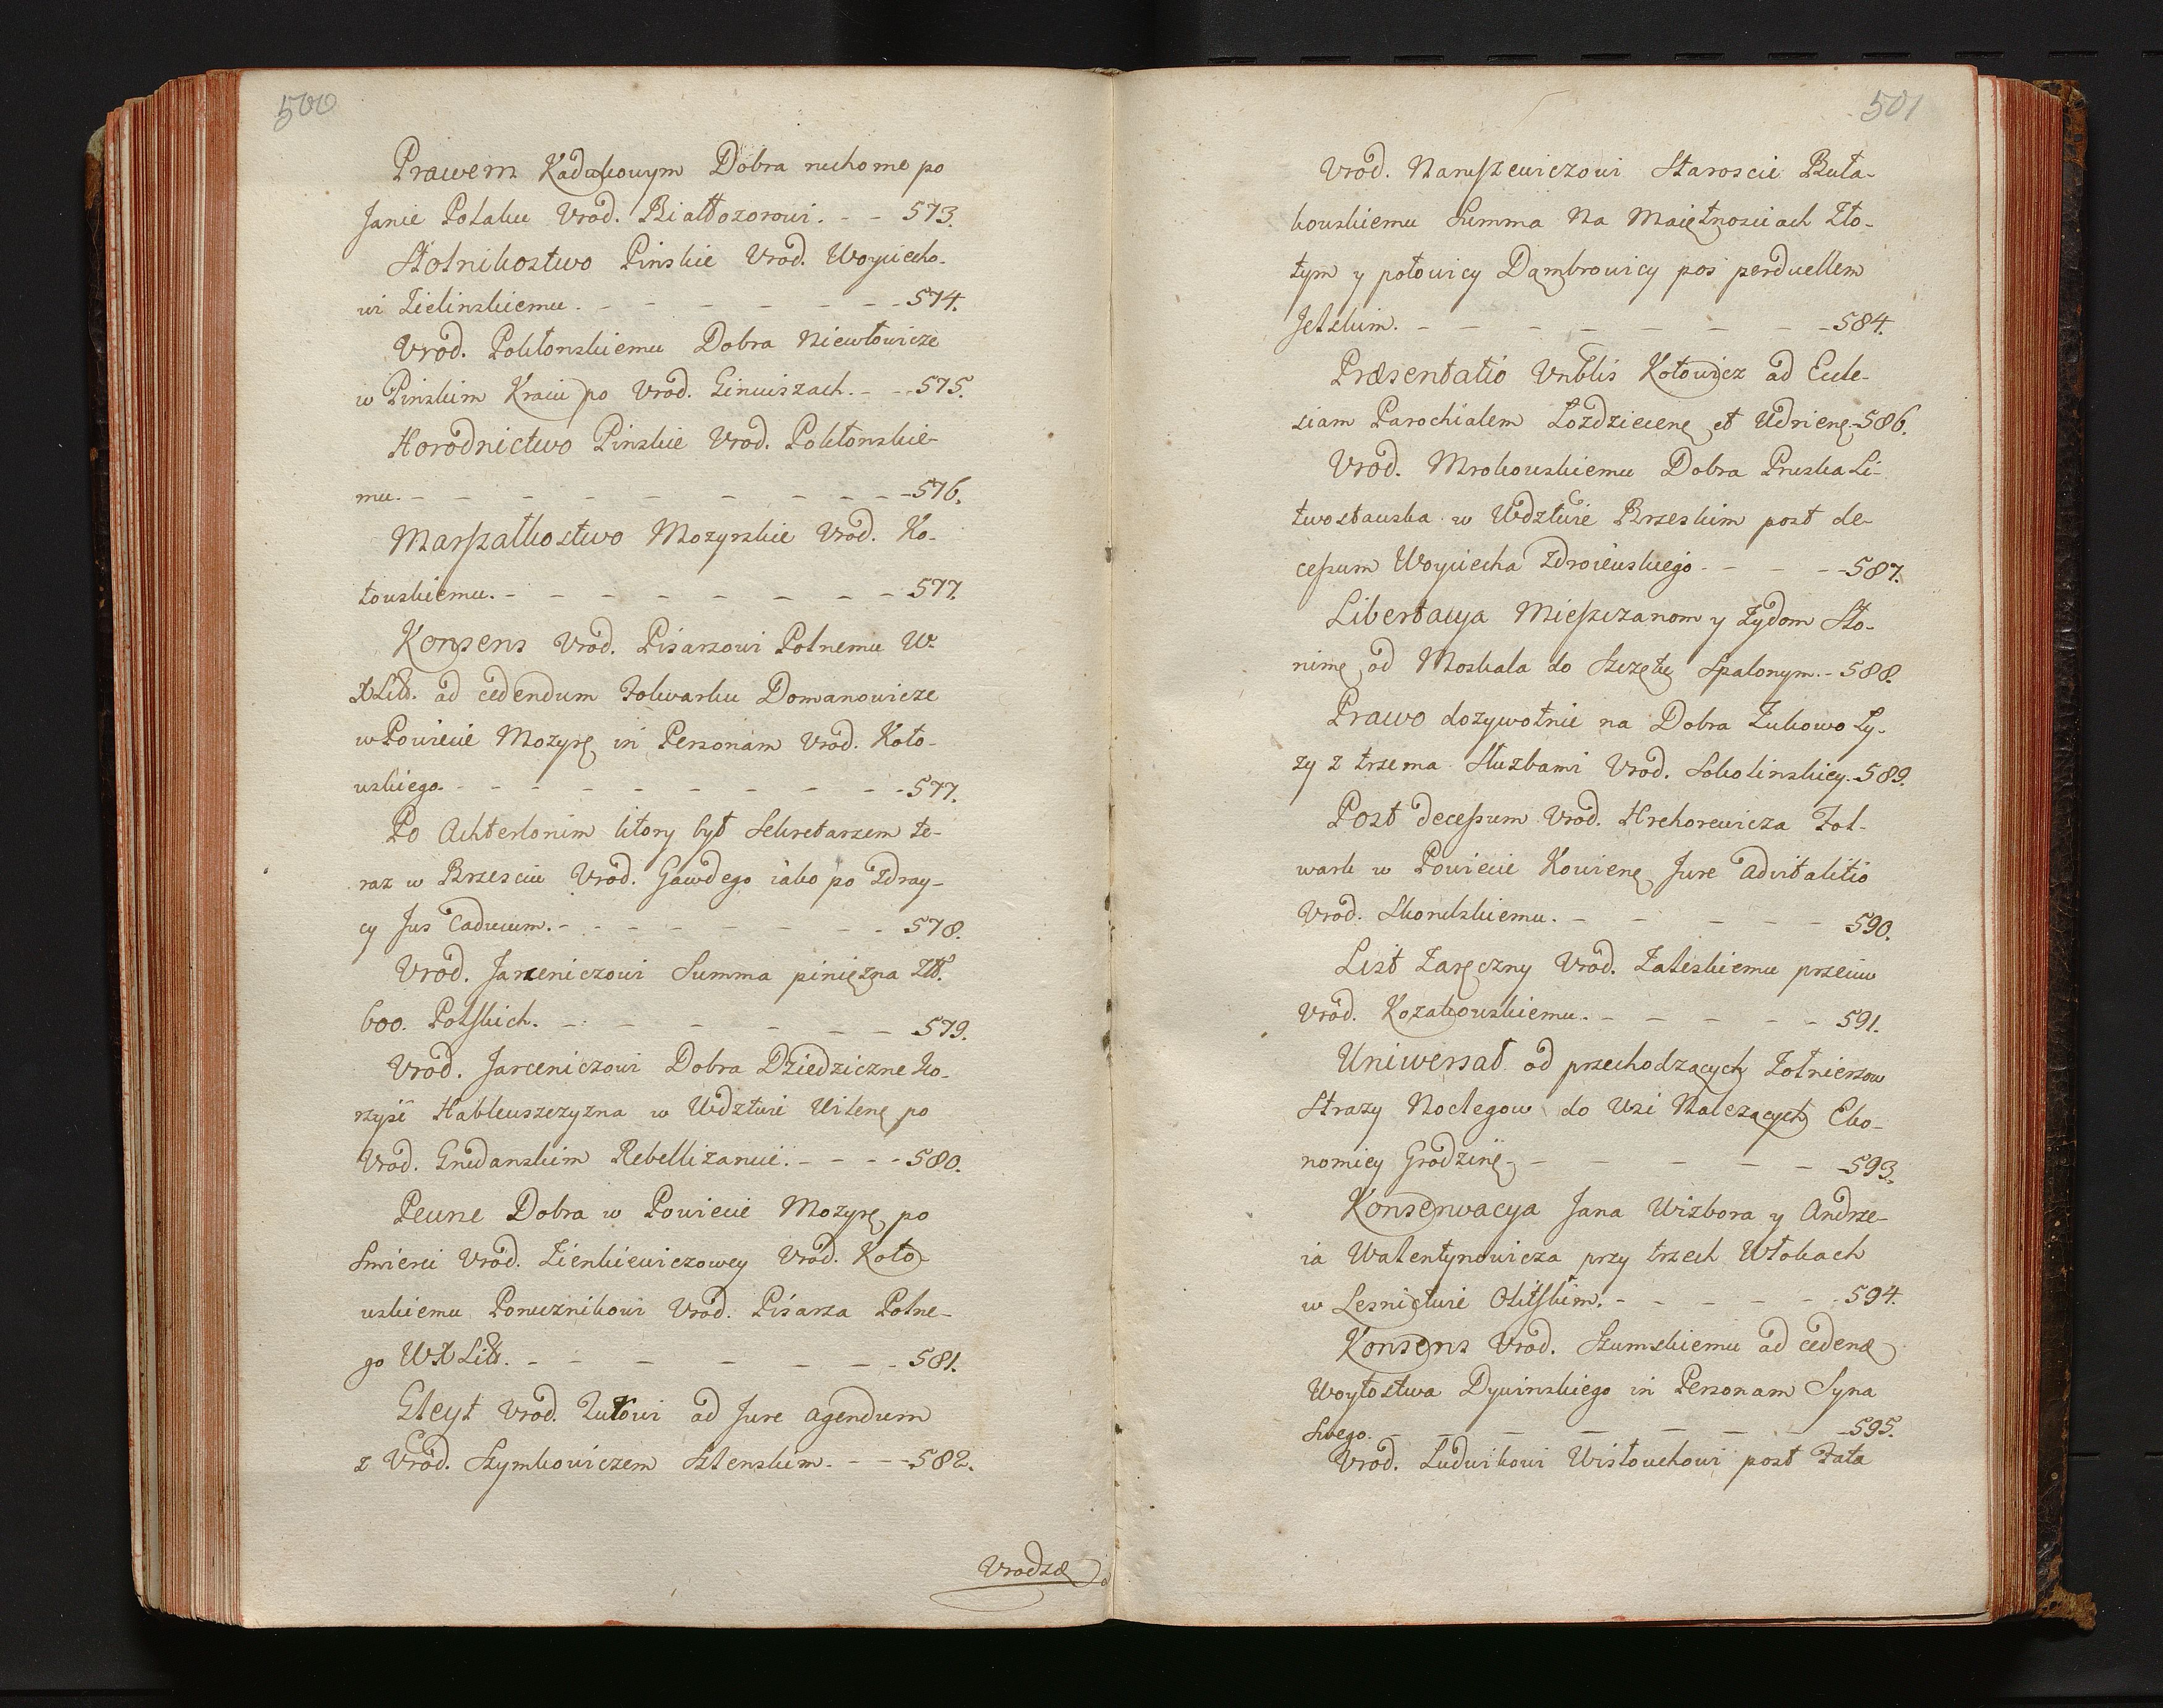 500
Prawem Kadukowym Dobra ruchome po
Janie Polaku Vrod. Białłozorowi. - - 573.
Stolnikostwo Pinskie Vrod. Woyciecho-
wi Zielinskiemu. - - - - - - - 574.
Vrod. Pokłonskiemu Dobra Niewłowicze
w Pinskim Kraiu po Vrod. Giniuszach. - - 575.
Horodnictwo Pinskie Vrod. Pokłonskie-
mu. - - - - - - - - - 576.
Marszałkostwo Mozyrskie Vrod. Ko-
towskiemu. - - - - - - - - 577.
Konsens Vrod. Pisarzowi Polnemu W.
X Litt. ad cedendum Folwarku Domanowicze
w Powiecie Mozyrę in Personam Vrod. Koto-
wskiego. - - - - - - - - - 577.
Po Achterlonim ktory był Sekretarzem te-
raz w Brzesciu Vrod. Gawdego iako po Zdray-
cy Jus Caducum. - - - - - - - 578.
Vrod. Jarzeniczowi Summa pinięzna Złł.
600. Polskich. - - - - - - - 579.
Vrod. Jarceniczowi Dobra Dziedziczne Ko-
rzyść Hableuszczyzna w Wdztwie Wilenę po
Vrod. Gnidanskim Rebellizancie. - - - - 580.
Pewne Dobra w Powiecie Mozyrę po
Smierci Vrod. Zienkiewiczowey Vrod. Koto-
wskiemu Porucznikowi Vrod. Pisarza Polne-
go WX Litt. - - - - - - - 581.
Gleyt Vrod. Zukowi ad Jure agendum
z Vrod. Szymkowiczem Szlenskim. - - - 582.
Vrodzę
501
Vrod. Naruszewiczowi Staroscie Buła-
kowskiemu Summa na Maiętnosciach Zło-
tym y połowicy Dąmbrowicy pos perduellem
Jelskim. - - - - - - - - 584.
Præsentatio Vnblis Kotowicz ad Eccle-
siam Parochialem Łozdziecenę et Udrienę - 586.
Vrod. Mrokowskiemu Dobra Pruska Li-
twostauska w Wdztwie Brzeskim post de-
cessum Woyciecha Zdroiewskiego - - - - 587.
Libertacya Mieszczanom y Zydom Sło-
nimę od Moskala do Szczętu Spalonym. - 588.
Prawo dozywotnie na Dobra Zukowo Ły-
zy z trzema Słuzbami Vrod. Sokolinskiey. - 589.
Post decessum Vrod. Hrehorewicza Fol-
wark w Powiecie Kowienę Jure advitalitio
Vrod. Skorulskiemu. - - - - - 590.
List Zaręczny Vrod. Zaleskiemu przeciw
Vrod. Kozakowskiemu. - - - - - 591.
Uniwersał od przechodzących Zołnierzow
Strazy Noclegow do Wsi Nalezących Eko-
nomicy Grodzinę - - - - - - 593.
Konserwacya Jana Wizbora y Andrze-
ia Walentynowicza przy trzech Włokach
w Lesnictwie Olitskim. - - - - - 594.
Konsens Vrod. Szumskiemu ad cedend
Woytostwa Dywinskiego in Personam Syna
Swego. - - - - - - - - 595.
Vrod. Ludwikowi Wisłouchowi post Fata